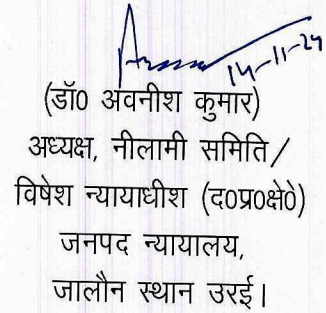 14-11-24
(डॉ0 अवनीश कुमार)
अध्यक्ष, नीलामी समिति/
विषेश न्यायाधीश (द0प्र0क्षे0)
जनपद न्यायालय,
जालौन स्थान उरई।